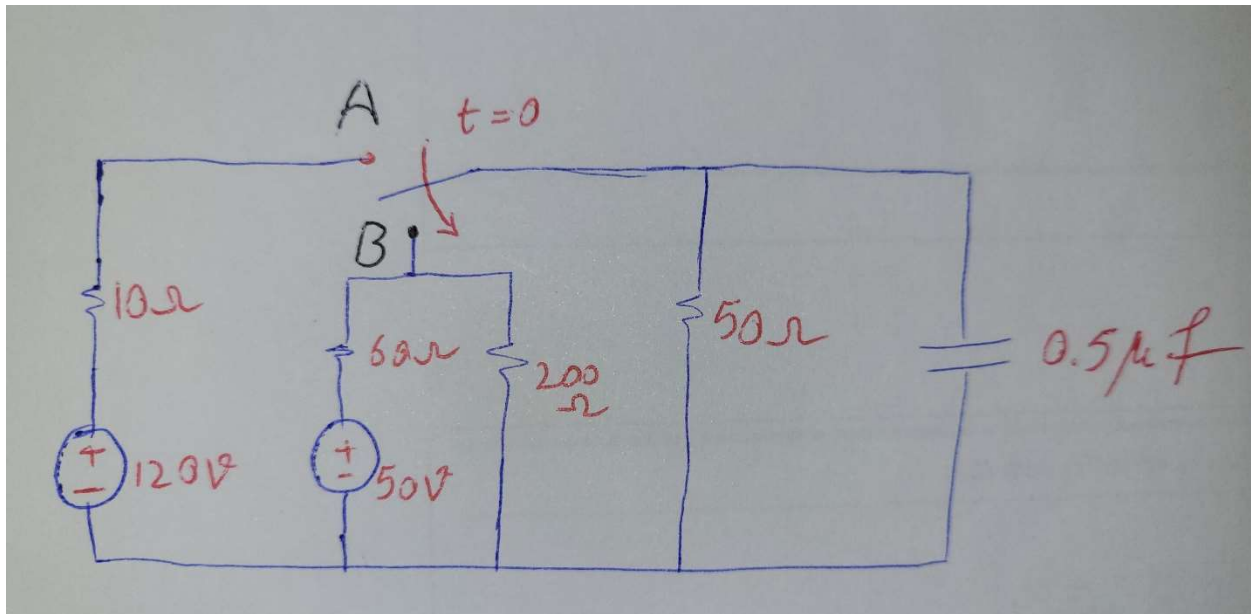 A
t=0
B
10Ω
60Ω
200
Ω
50Ω
0.5μf
+
−
120V
+
−
50V